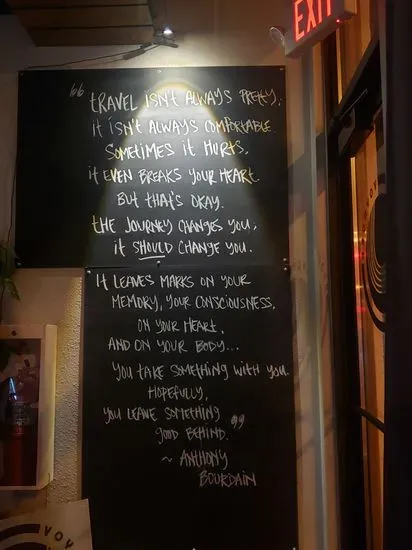 EXIT
“ TRAVEL ISN'T ALWAYS PRETTY.
IT ISN'T ALWAYS COMFORTABLE.
SOMETIMES IT HURTS.
IT EVEN BREAKS YOUR HEART.
BUT THAT'S OKAY.
THE JOURNEY CHANGES YOU;
IT SHOULD CHANGE YOU.
IT LEAVES MARKS ON YOUR
MEMORY, YOUR CONSCIOUSNESS,
ON YOUR HEART,
AND ON YOUR BODY...
YOU TAKE SOMETHING WITH YOU.
HOPEFULLY,
YOU LEAVE SOMETHING
GOOD BEHIND. ”
~ ANTHONY
BOURDAIN
VOY